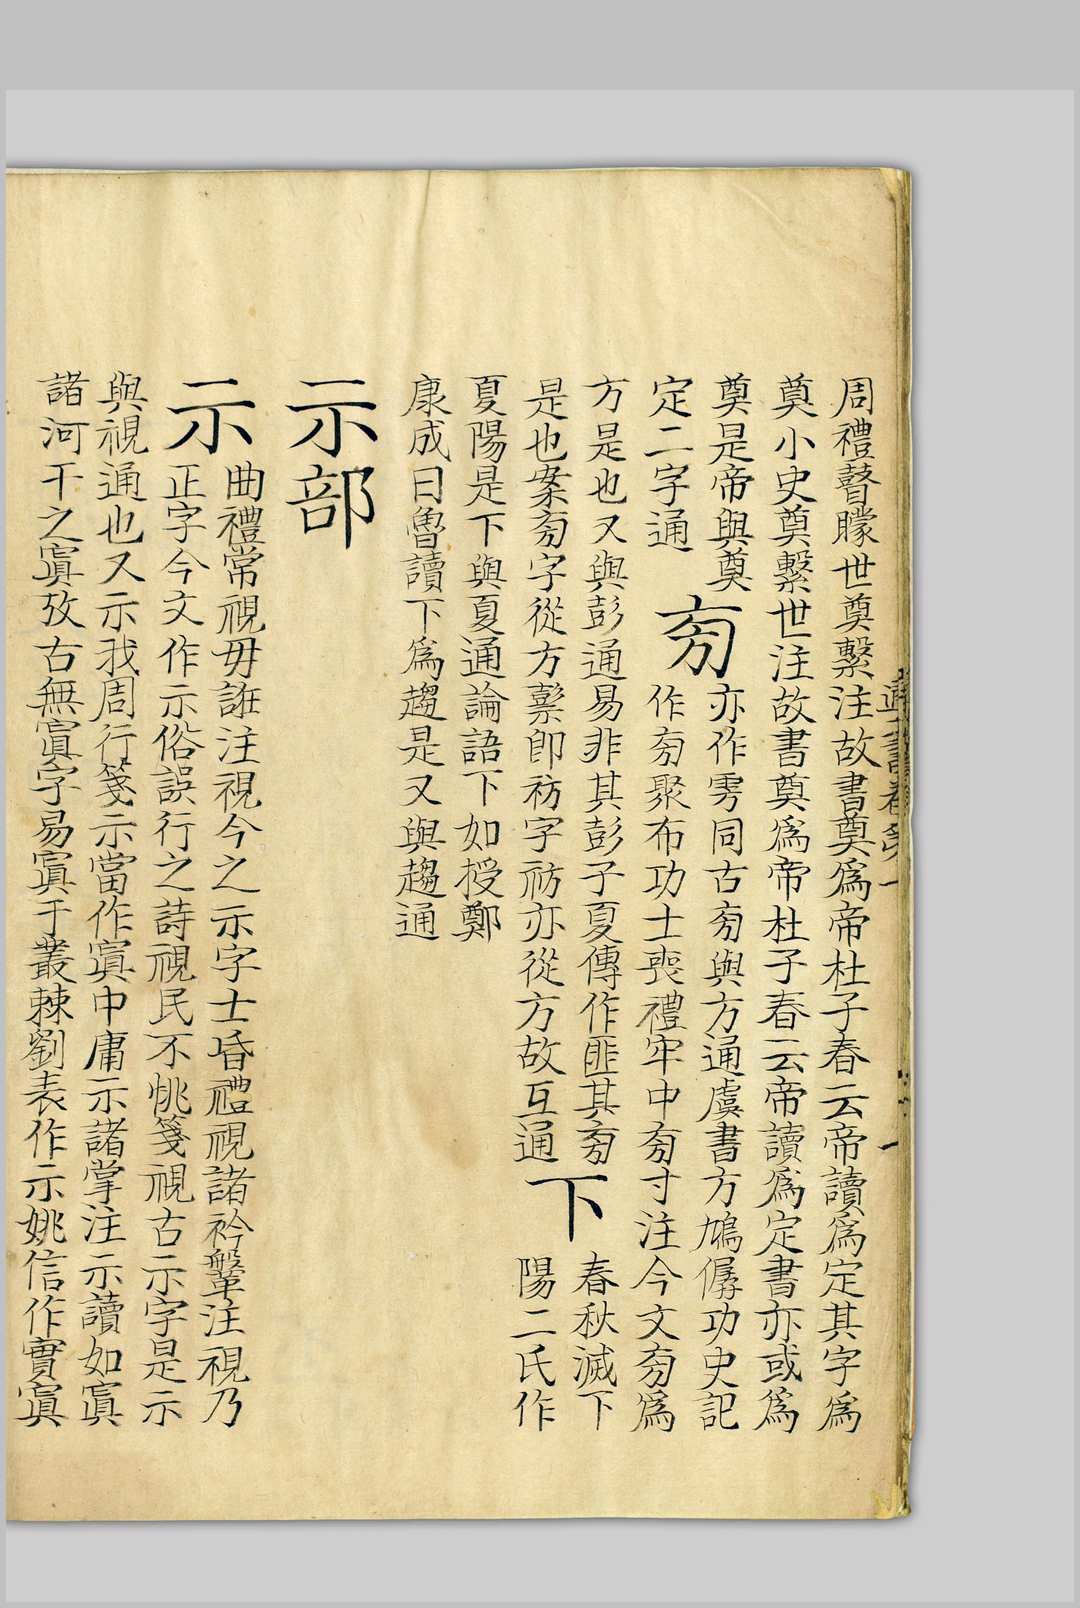 周禮瞽矇世奠繫注故書奠爲帝杜子春云帝讀爲定其字爲
奠小史奠繫世注故書奠爲帝杜子春云帝讀爲定書亦或爲
奠是帝與奠
定二字通
旁
亦作雱同古旁與方通虞書方鳩僝功史記
作旁聚布功士喪禮牢中旁寸注今文旁爲
方是也又與彭通易非其彭子夏傳作匪其旁
是也案旁字從方卽祊字祊亦從方故互通
下
春秋滅下
陽二氏作
夏陽是下與夏通論語下如授鄭
康成曰魯讀下爲趨是又與趨通
示部
示
曲禮常視毋誑注視今之示字士昏禮視諸衿鞶注視乃
正字今文作示俗誤行之詩視民不恌箋視古示字是示
與視通也又示我周行箋示當作寘中庸示諸掌注示讀如寘
諸河干之寘攷古無寘字易寘于叢棘劉表作示姚信作實寘